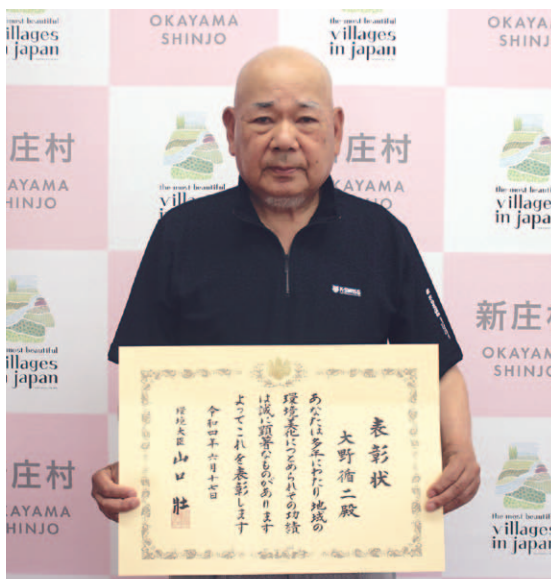 the most beautiful
villages
in japan
OKAYAMA
SHINJO
the most beautiful
villages
in japan
OKAYAMA
SHINJO
新庄村
OKAYAMA
SHINJO
庄村
KAYAMA
HINJO
庄村
the most beautiful
villages
in japan
the most beautiful
villages
in japan
新庄村
OKAYAMA
SHINJO
the most beautiful
villages
in japan
庄村
KAYAMA
HINJO
the most beautiful
villages
in japan
表彰状
大野循二殿
あなたは多年にわたり地域の
環境美化につとめられその功績
は誠に顕著なものがあります
よってこれを表彰します
令和四年六月十七日
環境大臣 山口 壯